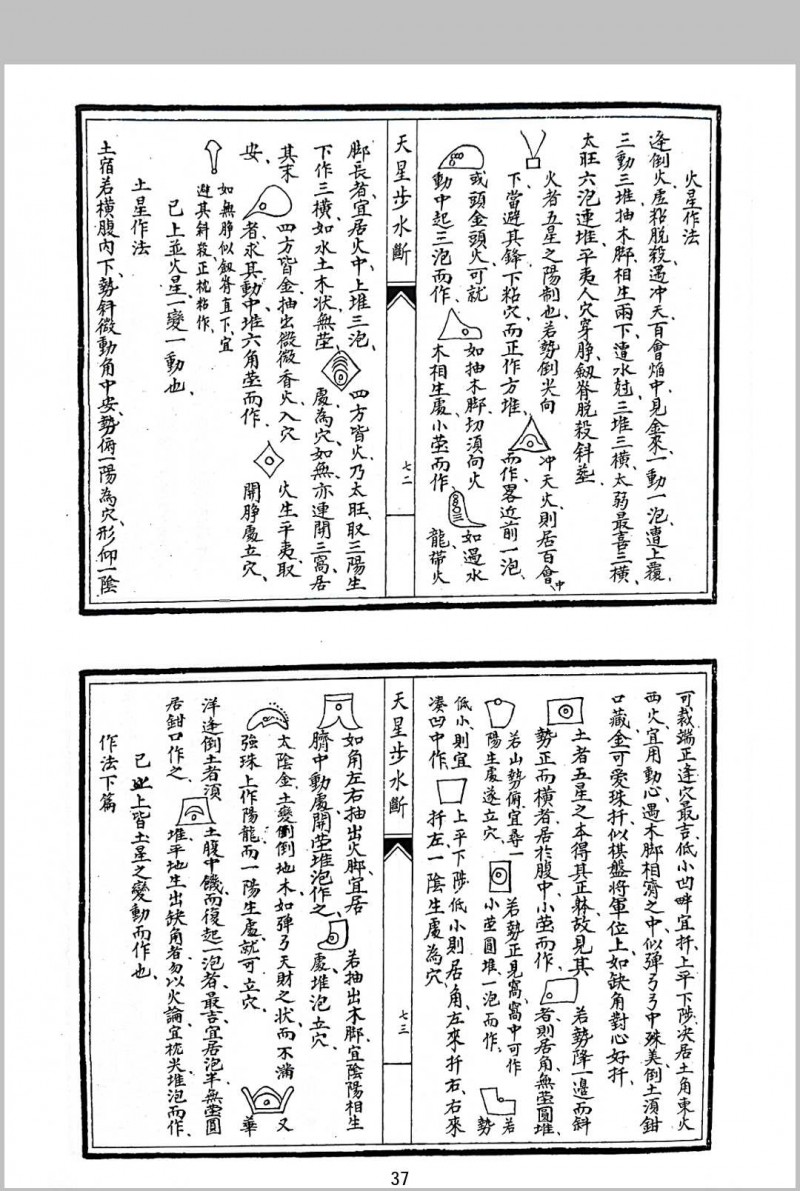 火星作法
逢倒火虛粘脫殺遇冲天百會焰中見金來一動一泡遭上覆
三動三堆抽木脚相生兩下遭水尅三堆三橫太弱最喜三橫
太旺六泡連堆平夷人穴穿脖劔脊脫殺斜塟
火者五星之陽制也若勢倒尖向
下當避其鋒下粘穴而正作方堆
冲天火則居百會中
而作畧近前一泡
或頭金頭火可就
動中起三泡而作
如抽木脚切須向火
木相生處小塋而作
如過水
龍帶火
天星步水斷
七二
脚長者宜居火中上堆三泡
下作三橫如水土木状無塋
四方皆火乃太旺取三陽生
處為穴如無亦連開三窩居
其末
安
四方皆金抽出微微香火入穴
者求其動中堆六角塋而作
火生平夷取
開脖處立穴
如無脖似劔脊直下宜
避其斜殺正枕粘作
已上並火星一變一動也
土星作法
土宿若橫腹內下勢斜微動角中安勢俯一陽為穴形仰一陰
可裁端正逢穴最吉低小凹畔宜扦上平下陟决居土角東火
西火宜用動心遇木脚相濟之中似彈弓弓中殊美倒土須鉗
口藏金可愛珠扦似棋盤將軍位上如缺角對心好扦
土者五星之本得其正躰故見其
勢正而橫者居於腹中小塋而作
若勢降一邊而斜
者則居角無塋圓堆
若山勢俯宜尋一
陽生處遂立穴
若勢正見窩窩中可作
小塋圓堆一泡而作
若
勢
低小則宜
凑凹中作
上平下陟低小則居角左來扦右右來
扦左一陰生處為穴
天星步水斷
七三
如角左右抽出火脚宜居
臍中動處開塋堆泡作之
若抽出木脚宜陰陽相生
處堆泡立穴
太陰金土變倒倒地木如彈弓天財之状而不滿
強珠上作陽龍而一陽生處就可立穴
又
華
洋逢倒土者須
居鉗口作之
土腹中饑而復起一泡者最吉宜居泡半無塋圓
堆平地生出缺角者勿以火論宜枕尖堆泡而作
已上皆土星之變動而作也
作法下篇
37